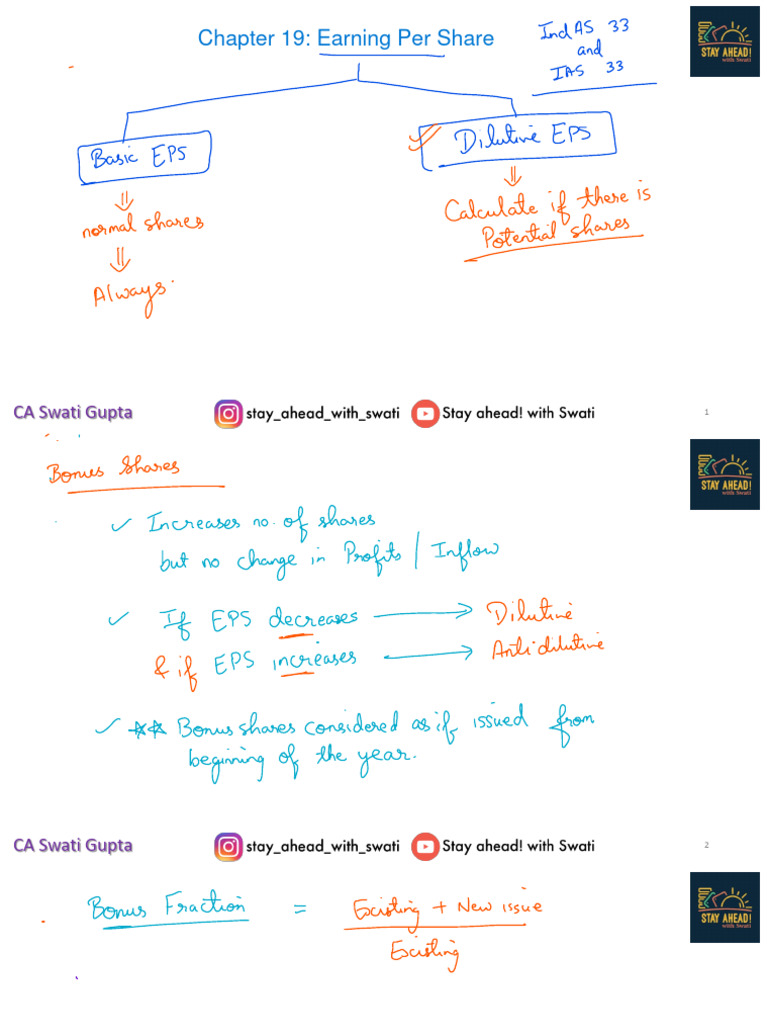 Chapter 19: Earning Per Share
Ind AS 33
and
IAS 33
STAY AHEAD!
with Swati
Basic EPS
Dilutive EPS
normal shares
Always
Calculate if there is
Potential shares
CA Swati Gupta
stay_ahead_with_swati
Stay ahead! with Swati
1
Bonus Shares
STAY AHEAD!
with Swati
✓ Increases no. of shares
but no change in Profits / Inflow
✓ If EPS decreases → Dilutive
& if EPS increases → Antidilutive
✓ ** Bonus shares considered as if issued from
beginning of the year.
CA Swati Gupta
stay_ahead_with_swati
Stay ahead! with Swati
2
STAY AHEAD!
with Swati
Bonus Fraction = Existing + New issue
Existing